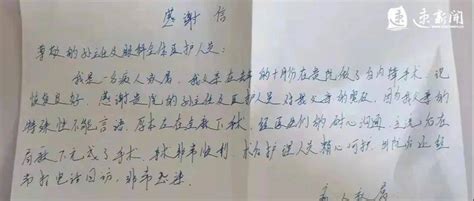 感谢信
尊敬的孙主任及眼科全体医护人员：
我是一名病人家属，我父亲在去年的十月份在贵院做了白内障手术，现
恢复良好，感谢贵院的孙主任及医护人员对我父亲的关爱，因为我父亲的
特殊性不能言语，原本应在全麻下手术，经医生们的耐心沟通，交流后在
局麻下完成了手术，手术非常顺利，术后护理人员精心呵护，出院后还经
常打电话回访，非常感谢。
病人家属